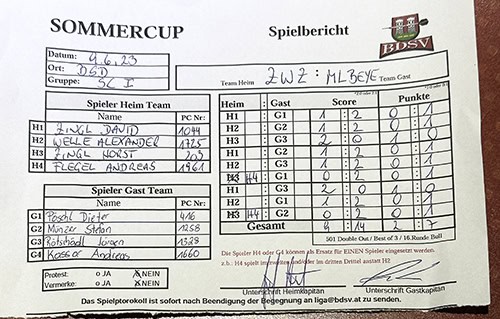 SOMMERCUP Spielbericht
BDSV
Datum: 9.6.23
Ort: DSD
Gruppe: SC I
Team Heim ZWZ : MLBEYE Team Gast
Spieler Heim Team PC Nr:
H1 ZINGL DAVID 1044
H2 WELLE ALEXANDER 1725
H3 ZINGL HORST 203
H4 FLEGEL ANDREAS 1961
Spieler Gast Team PC Nr:
G1 Pöschl Dieter 416
G2 Münzer Stefan 1258
G3 Rotschädl Jürgen 1328
G4 Kasser Andreas 1660
Heim : Gast Score Punkte
H1 : G1 1 : 2 0 : 1
H2 : G2 1 : 2 0 : 1
H3 : G3 2 : 0 1 : 0
H1 : G2 1 : 2 0 : 1
H3 H4 : G1 0 : 2 0 : 1
H2 : G3 2 : 0 1 : 0
H1 : G3 1 : 2 0 : 1
H2 : G1 1 : 2 0 : 1
H3 H4 : G2 0 : 2 0 : 1
Gesamt 9 : 14 2 : 7
501 Double Out / Best of 3 / 16. Runde Bull
Die Spieler H4 oder G4 können als Ersatz für EINEN Spieler eingesetzt werden.
z.b.: H4 spielt im zweiten und/oder im dritten Drittel anstatt H2
Protest: o JA NEIN
Vermerke: o JA NEIN
Unterschrift Heimkapitän Unterschrift Gastkapitän
Das Spielprotokoll ist sofort nach Beendigung der Begegnung an liga@bdsv.at zu senden.